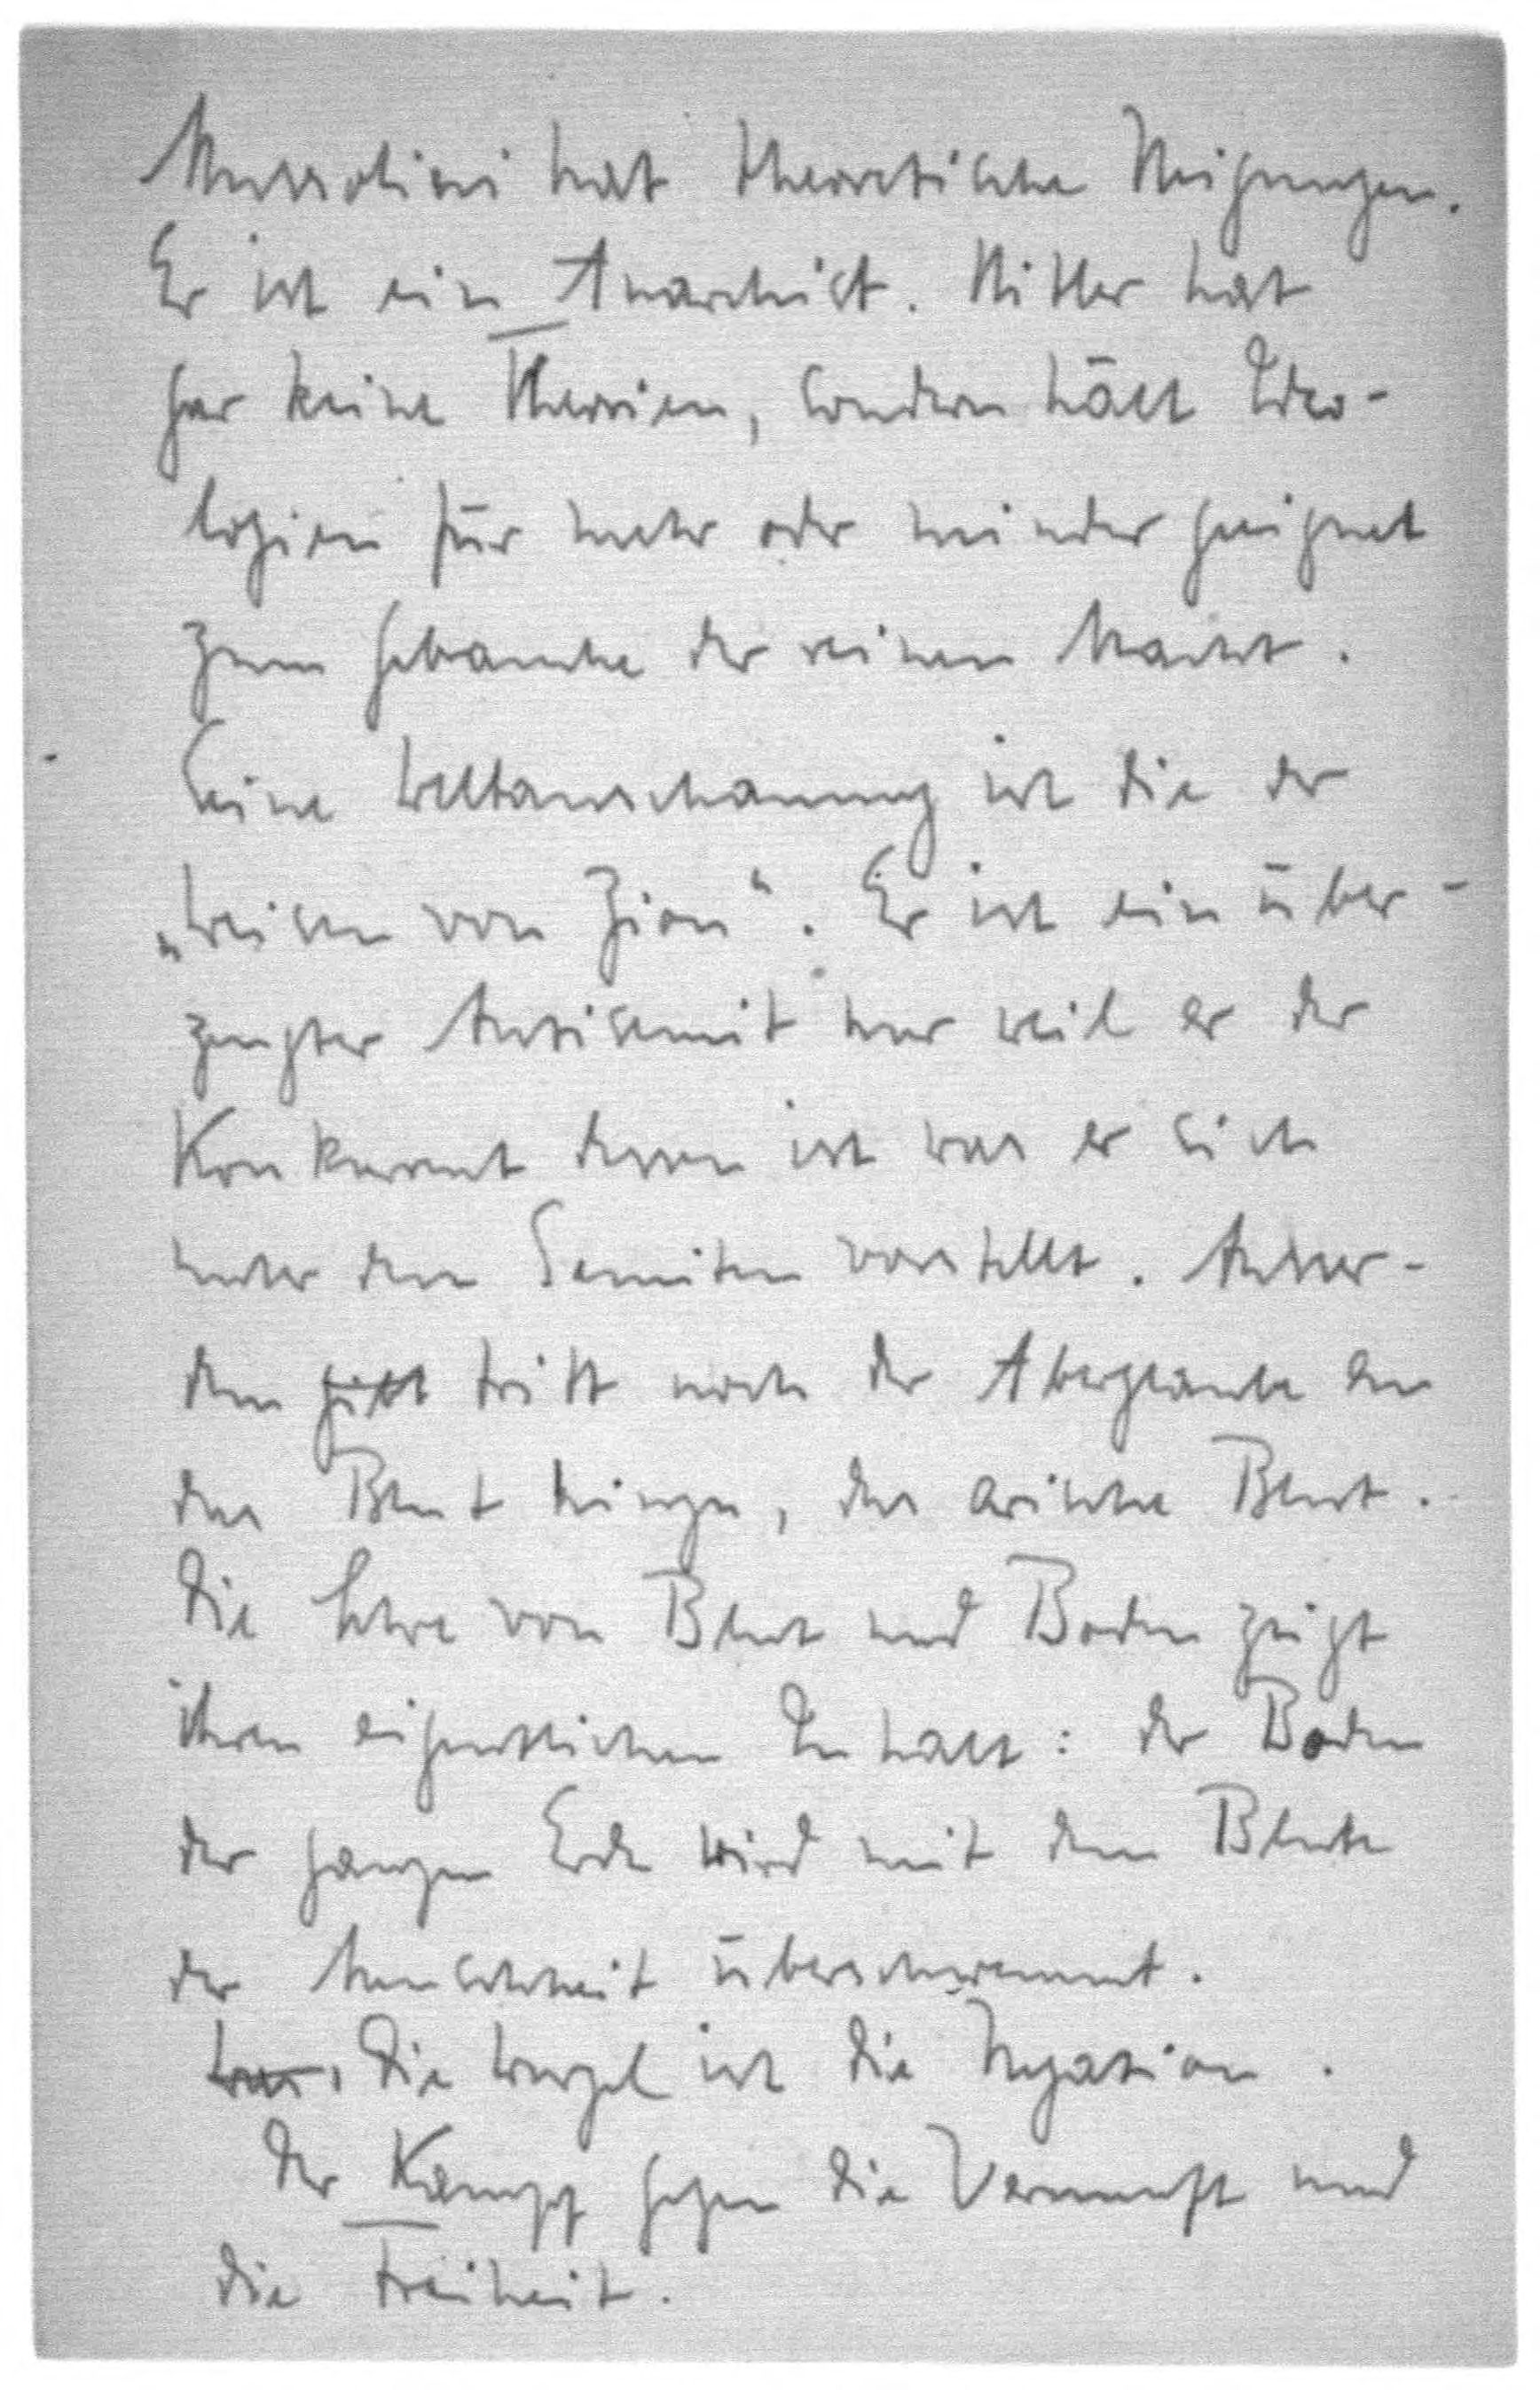 Mussolini hat theoretische Neigungen.
Er ist ein Anarchist. Hitler hat
gar keine Theorien, sondern hält Ideo-
logien für mehr oder minder geeignet
zum Gebrauche der reinen Macht.
Seine Weltanschauung ist die der
„Weisen von Zion“. Er ist ein über-
zeugter Antisemit nur weil er der
Konkurrent dessen ist was er sich
unter den Semiten vorstellt. Ausser-
dem gibt tritt noch der Aberglaube an
das Blut hinzu, das arische Blut.
Die Lehre von Blut und Boden zeigt
ihren eigentlichen Inhalt: der Boden
der ganzen Erde wird mit dem Blute
der Menschheit überschwemmt.
Was, Die Wurzel ist die Negation.
Der Kampf gegen die Vernunft und
die Freiheit.